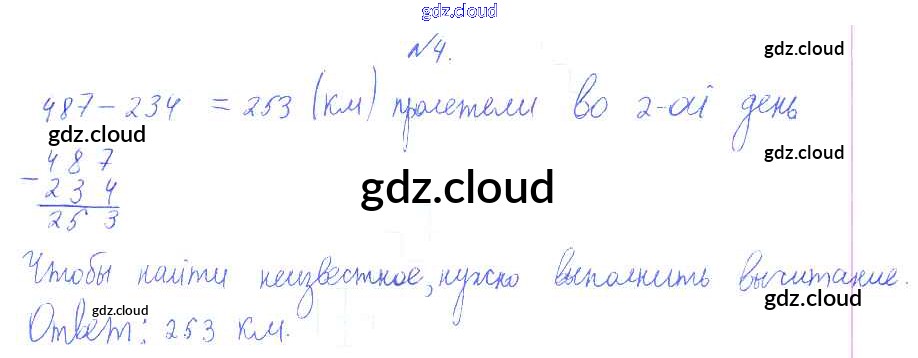 gdz.cloud
№4.
gdz.cloud
487 - 234 = 253 (км) пролетели во 2-ой день
gdz.cloud
gdz.cloud
- 487
234
253
gdz.cloud
Чтобы найти неизвестное, нужно выполнить вычитание.
gdz.cloud
gdz.cloud
Ответ: 253 км.